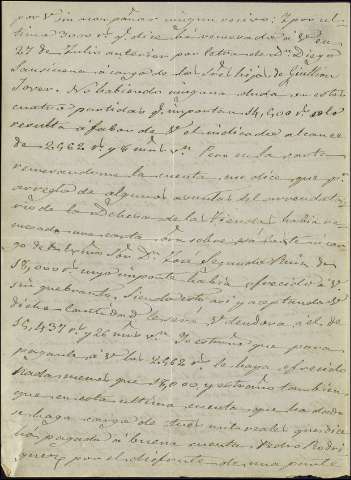 por Vd. no acompañar ningun recivo: Y por ul-
tima 3000 rs. qe. dice ha renovado á Vd. en
27 de Julio anterior por letra de Dn. Diego
á cargo de los Sres. hijos de Guillen
Tover. No habiendo ninguna duda en estas
cuatro partidas qe. importan 14,600 rs.
resulta á fabor de Vd. el indicado alcance
de 2,462 rs. y 8 mrs. vn. Pero en la carta
remitiendome la cuenta me dice que pr.
arreglo de algunos asuntos del arrendata-
rio de la Dehesa de las Viendas habia
una carta orden sobre
go de Exmo. Sor. Dn. Jose Segundo Ruiz de
18,000 rs. cuyo importe habia ofrecido á Vd.
sin quebranto. Siendo esto asi y aceptando Vd.
dicha cantidad Vd. deudora á él de
15,437 rs. y 26 mrs. vn. Yo estraño que para
pagarle á Vd. los 2,462 rs. le haya ofrecido
nada menos que 18,000, y estraño tambien
que en esta ultima cuenta que ha dado
se haga cargo de tres mil reales que dice
há pagado á buena cuenta Pedro Rodri
guez por el disfrute de una parte